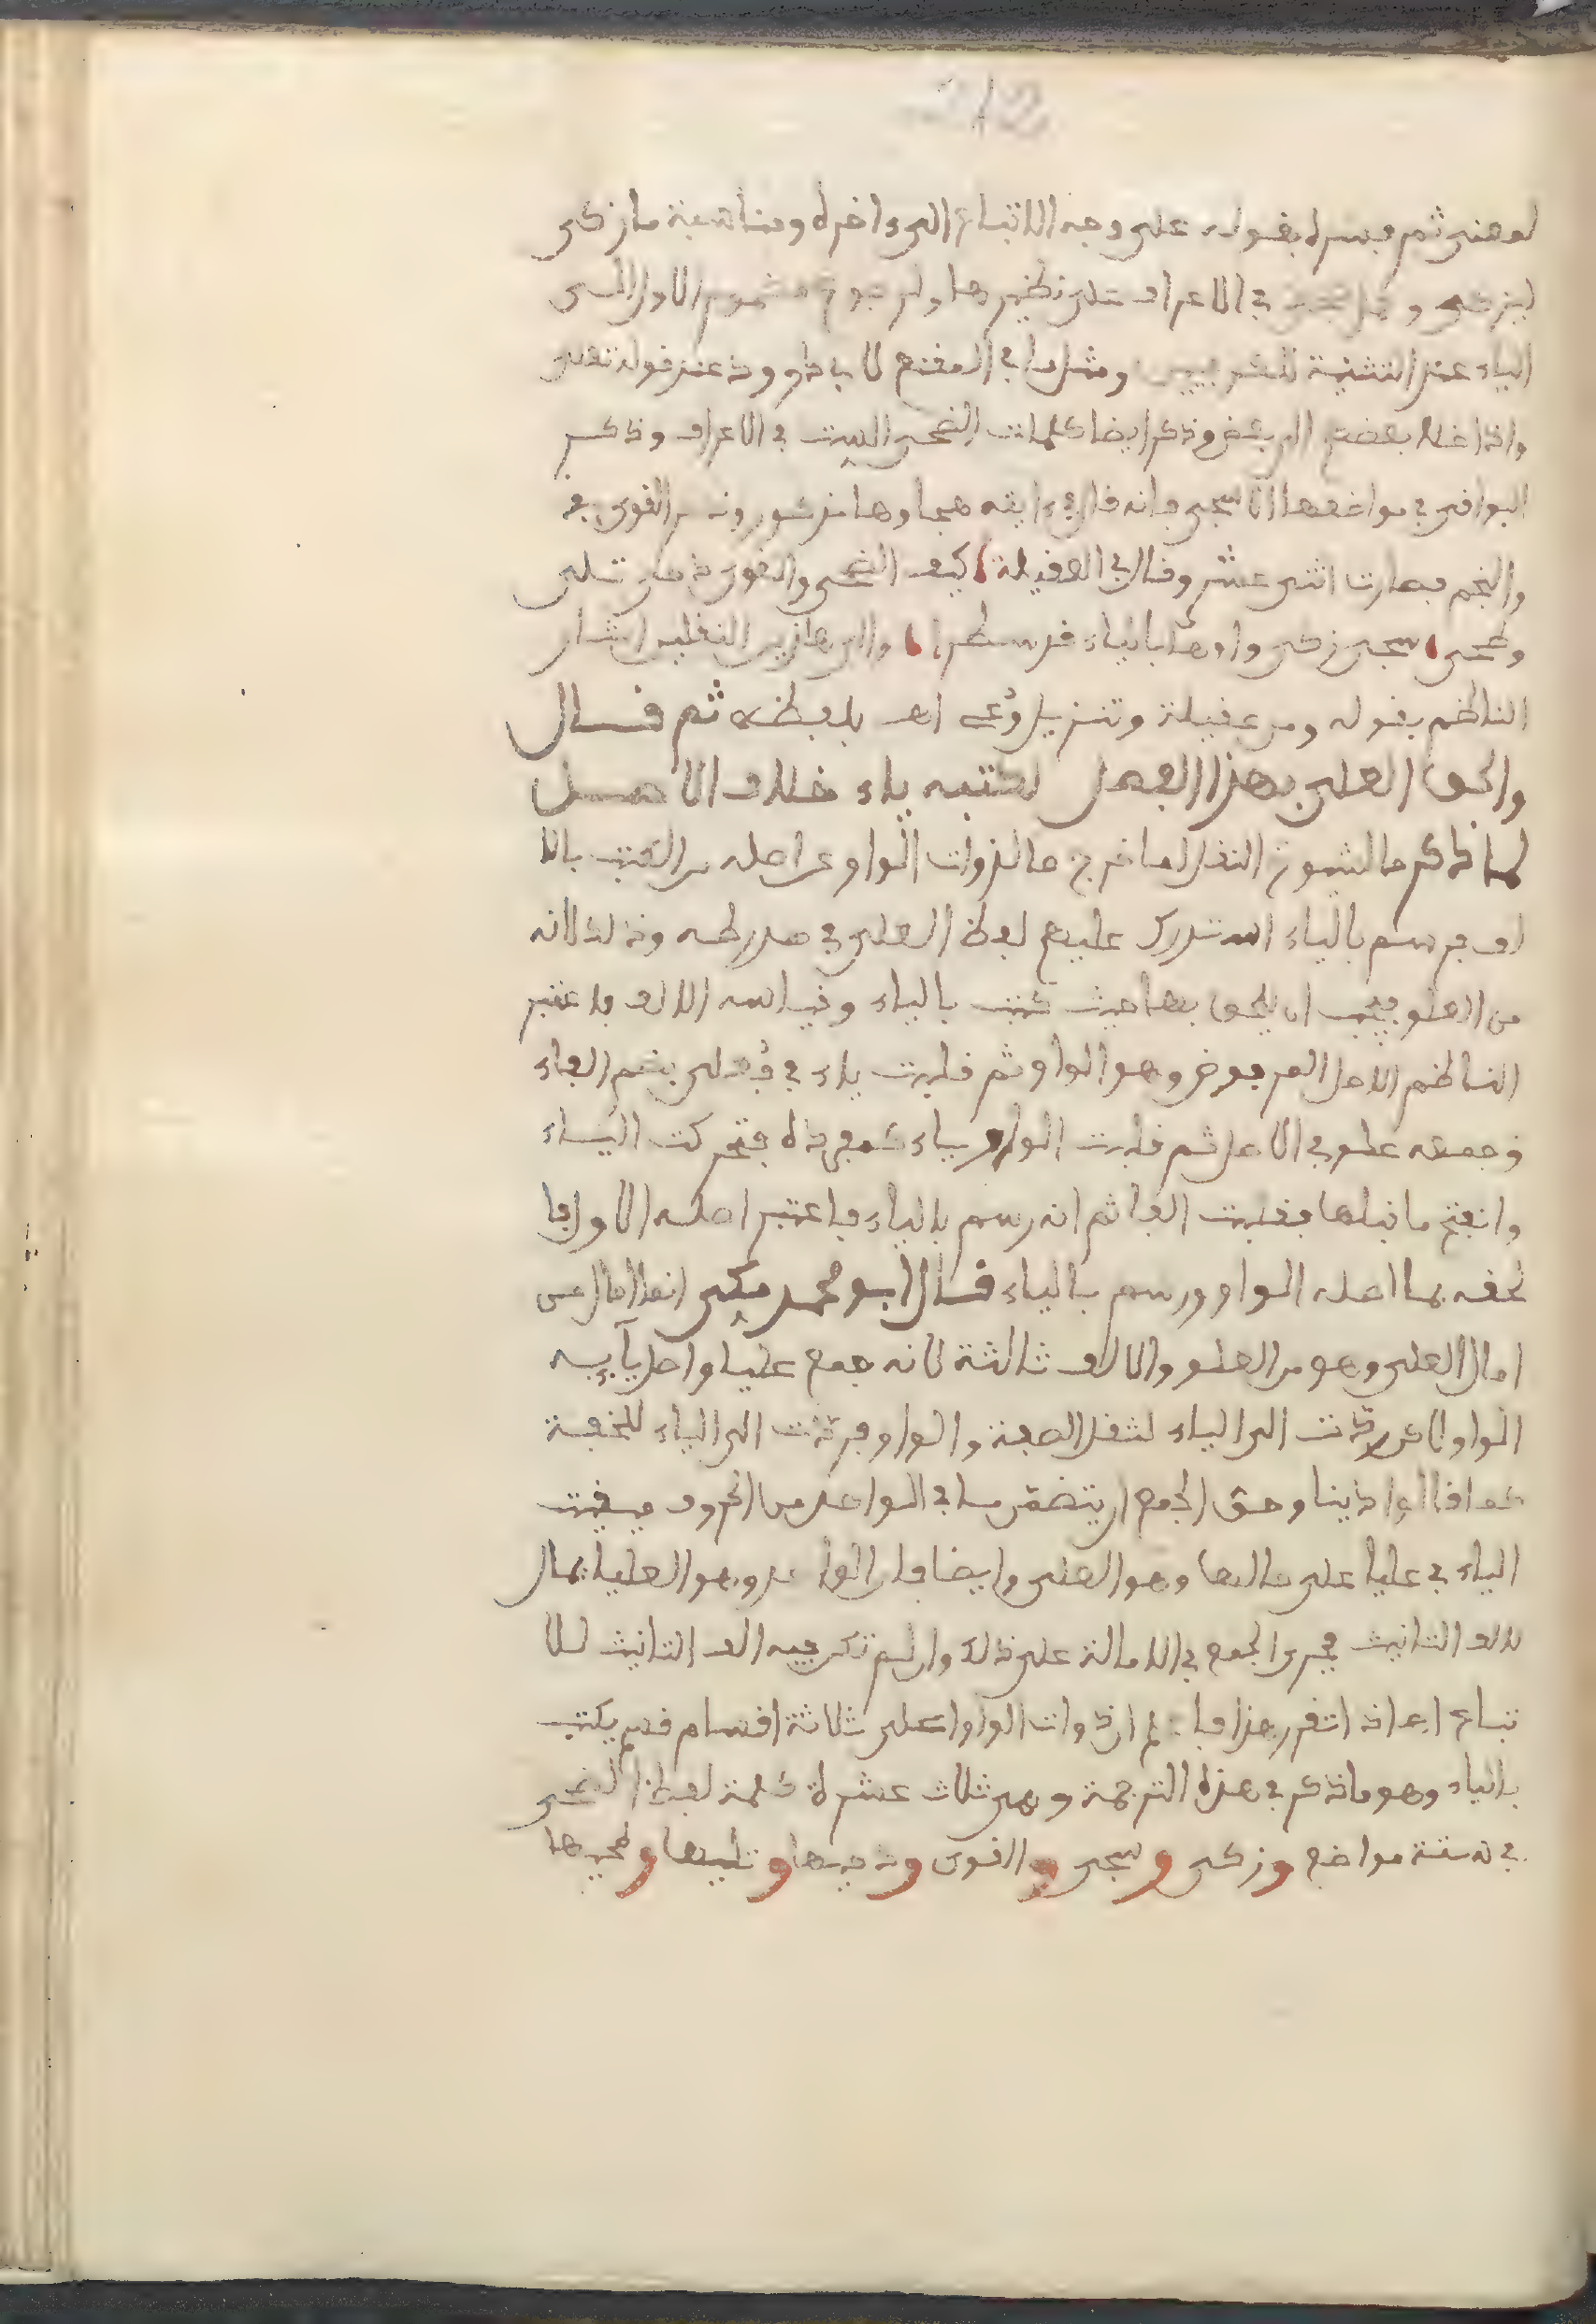 212
لمعنى ثم فسره بقوله على وجه الاتباع الى ءاخره ومناسبة ما زكى
ليزكى و في الاعراف على نظيرها ولرجوع الاول الى
الياء عند التثنية للكوفيين ومثلها في المقنع لابي داوود عند قوله تعلى
واذا خلا بعضهم الى بعض وذكر ايضا كلمات الضحى الست في الاعراف وذكر
البواقي في مواضعها الا سجى فانه قال في اية هجاوها مذكور ونص القوى في
والنجم فصارت اثنى عشر وقال في العقيلة كيف الضحى والقوى دحى تلى
وطحى سجى زكى واوها بالياء قد سطرا والى هاذين النقلين اشار
الناظم بقوله ومن عقيلة وتنزيل وعى اهـ بلفظه ثم قال
والحق العلى بهذا الفصل لكتبه ياء خلاف الاصل
لما ذكر ما لشيوخ النقل مما خرج من ذوات الواو عن اصله من الكتب بالا
لف فرسم بالياء استدرك عليهم لفظ العلى في صدر طه وذلك لانه
من العلو فيجب ان يلحق بها حيث كتب بالياء وقياسه الالف فاعتبر
الناظم الاصل المرفوض وهو الواو ثم قلبت ياء في فعلى بضم الفاء
وجمعه علو في الاصل ثم قلبت الواو ياء كمفرده فتحركت الياء
وانفتح ما قبلها فقلبت الفا ثم انه رسم بالياء فاعتبر اصله الاول فا
لحقه بما اصله الواو ورسم بالياء قال ابو محمد مكي انما امال من
امال العلى وهو من العلو والالف ثالثة لانه جمع عليا واصل يآيه
الواو لاكن ردت الى الياء لثقل الصفة والواو فردت الى الياء للخفة
كما قالوا دينا وحق الجمع ان يتضمن ما في الواحد من الحروف فبقيت
الياء في عليا على حالها وهو العلى وايضا فان الواحد وهو العليا يمال
لالف التانيث فجرى الجمع في الامالة على ذلك وان لم تكن فيه الف التانيث للا
تباع اهـ اذا تقرر هذا فاعلم ان ذوات الواو على ثلاثة اقسام قسم يكتب
بالياء وهو ما ذكر في هذه الترجمة وهي ثلاث عشرة كلمة لفظ الضحى
في ستة مواضع وزكى وسجى والقوى ودحيها وتليها وطحيها